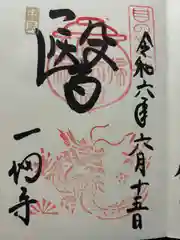 目の
令和六年六月十五日
醫
一畑寺